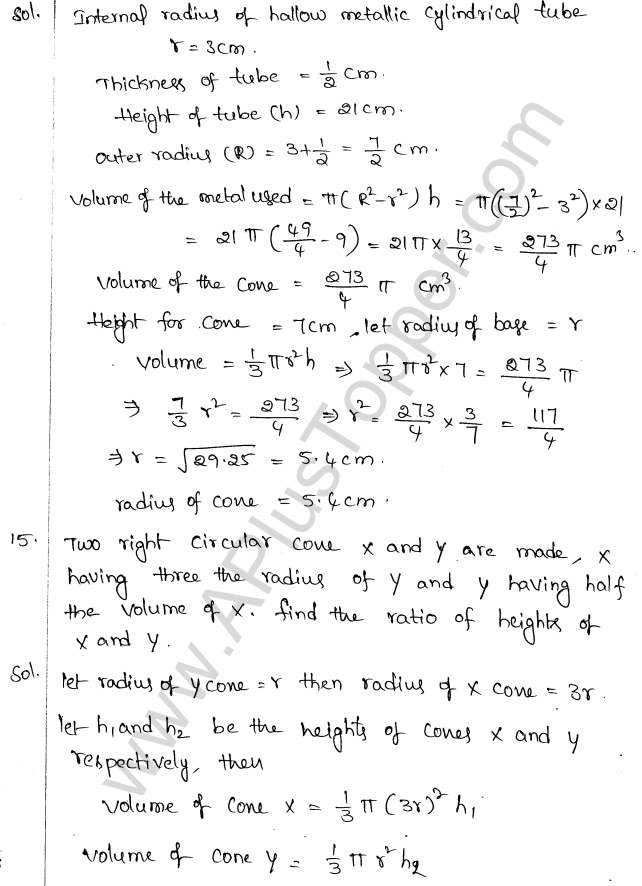 Sol. Internal radius of hallow metallic cylindrical tube
r = 3cm.
Thickness of tube = 1/2 cm.
Height of tube (h) = 21cm.
outer radius (R) = 3+1/2 = 7/2 cm.
volume of the metal used = π(R²-r²) h = π((7/2)²- 3²)×21
= 21 π (49/4 - 9) = 21π × 13/4 = 273/4 π cm³.
volume of the cone = 273/4 π cm³.
Height for cone = 7cm, let radius of base = r
volume = 1/3 πr²h ⇒ 1/3 πr²×7 = 273/4 π
⇒ 7/3 r² = 273/4 ⇒ r² = 273/4 × 3/7 = 117/4
⇒ r = √29.25 = 5.4cm.
radius of cone = 5.4cm.
15. Two right circular cone x and y are made, x
having three the radius of y and y having half
the volume of x. find the ratio of heights of
x and y.
Sol. let radius of y cone = r then radius of x cone = 3r.
let h₁ and h₂ be the heights of cones x and y
respectively, then
volume of cone x = 1/3 π (3r)² h₁
volume of cone y = 1/3 π r² h₂
www.APlusTopper.com